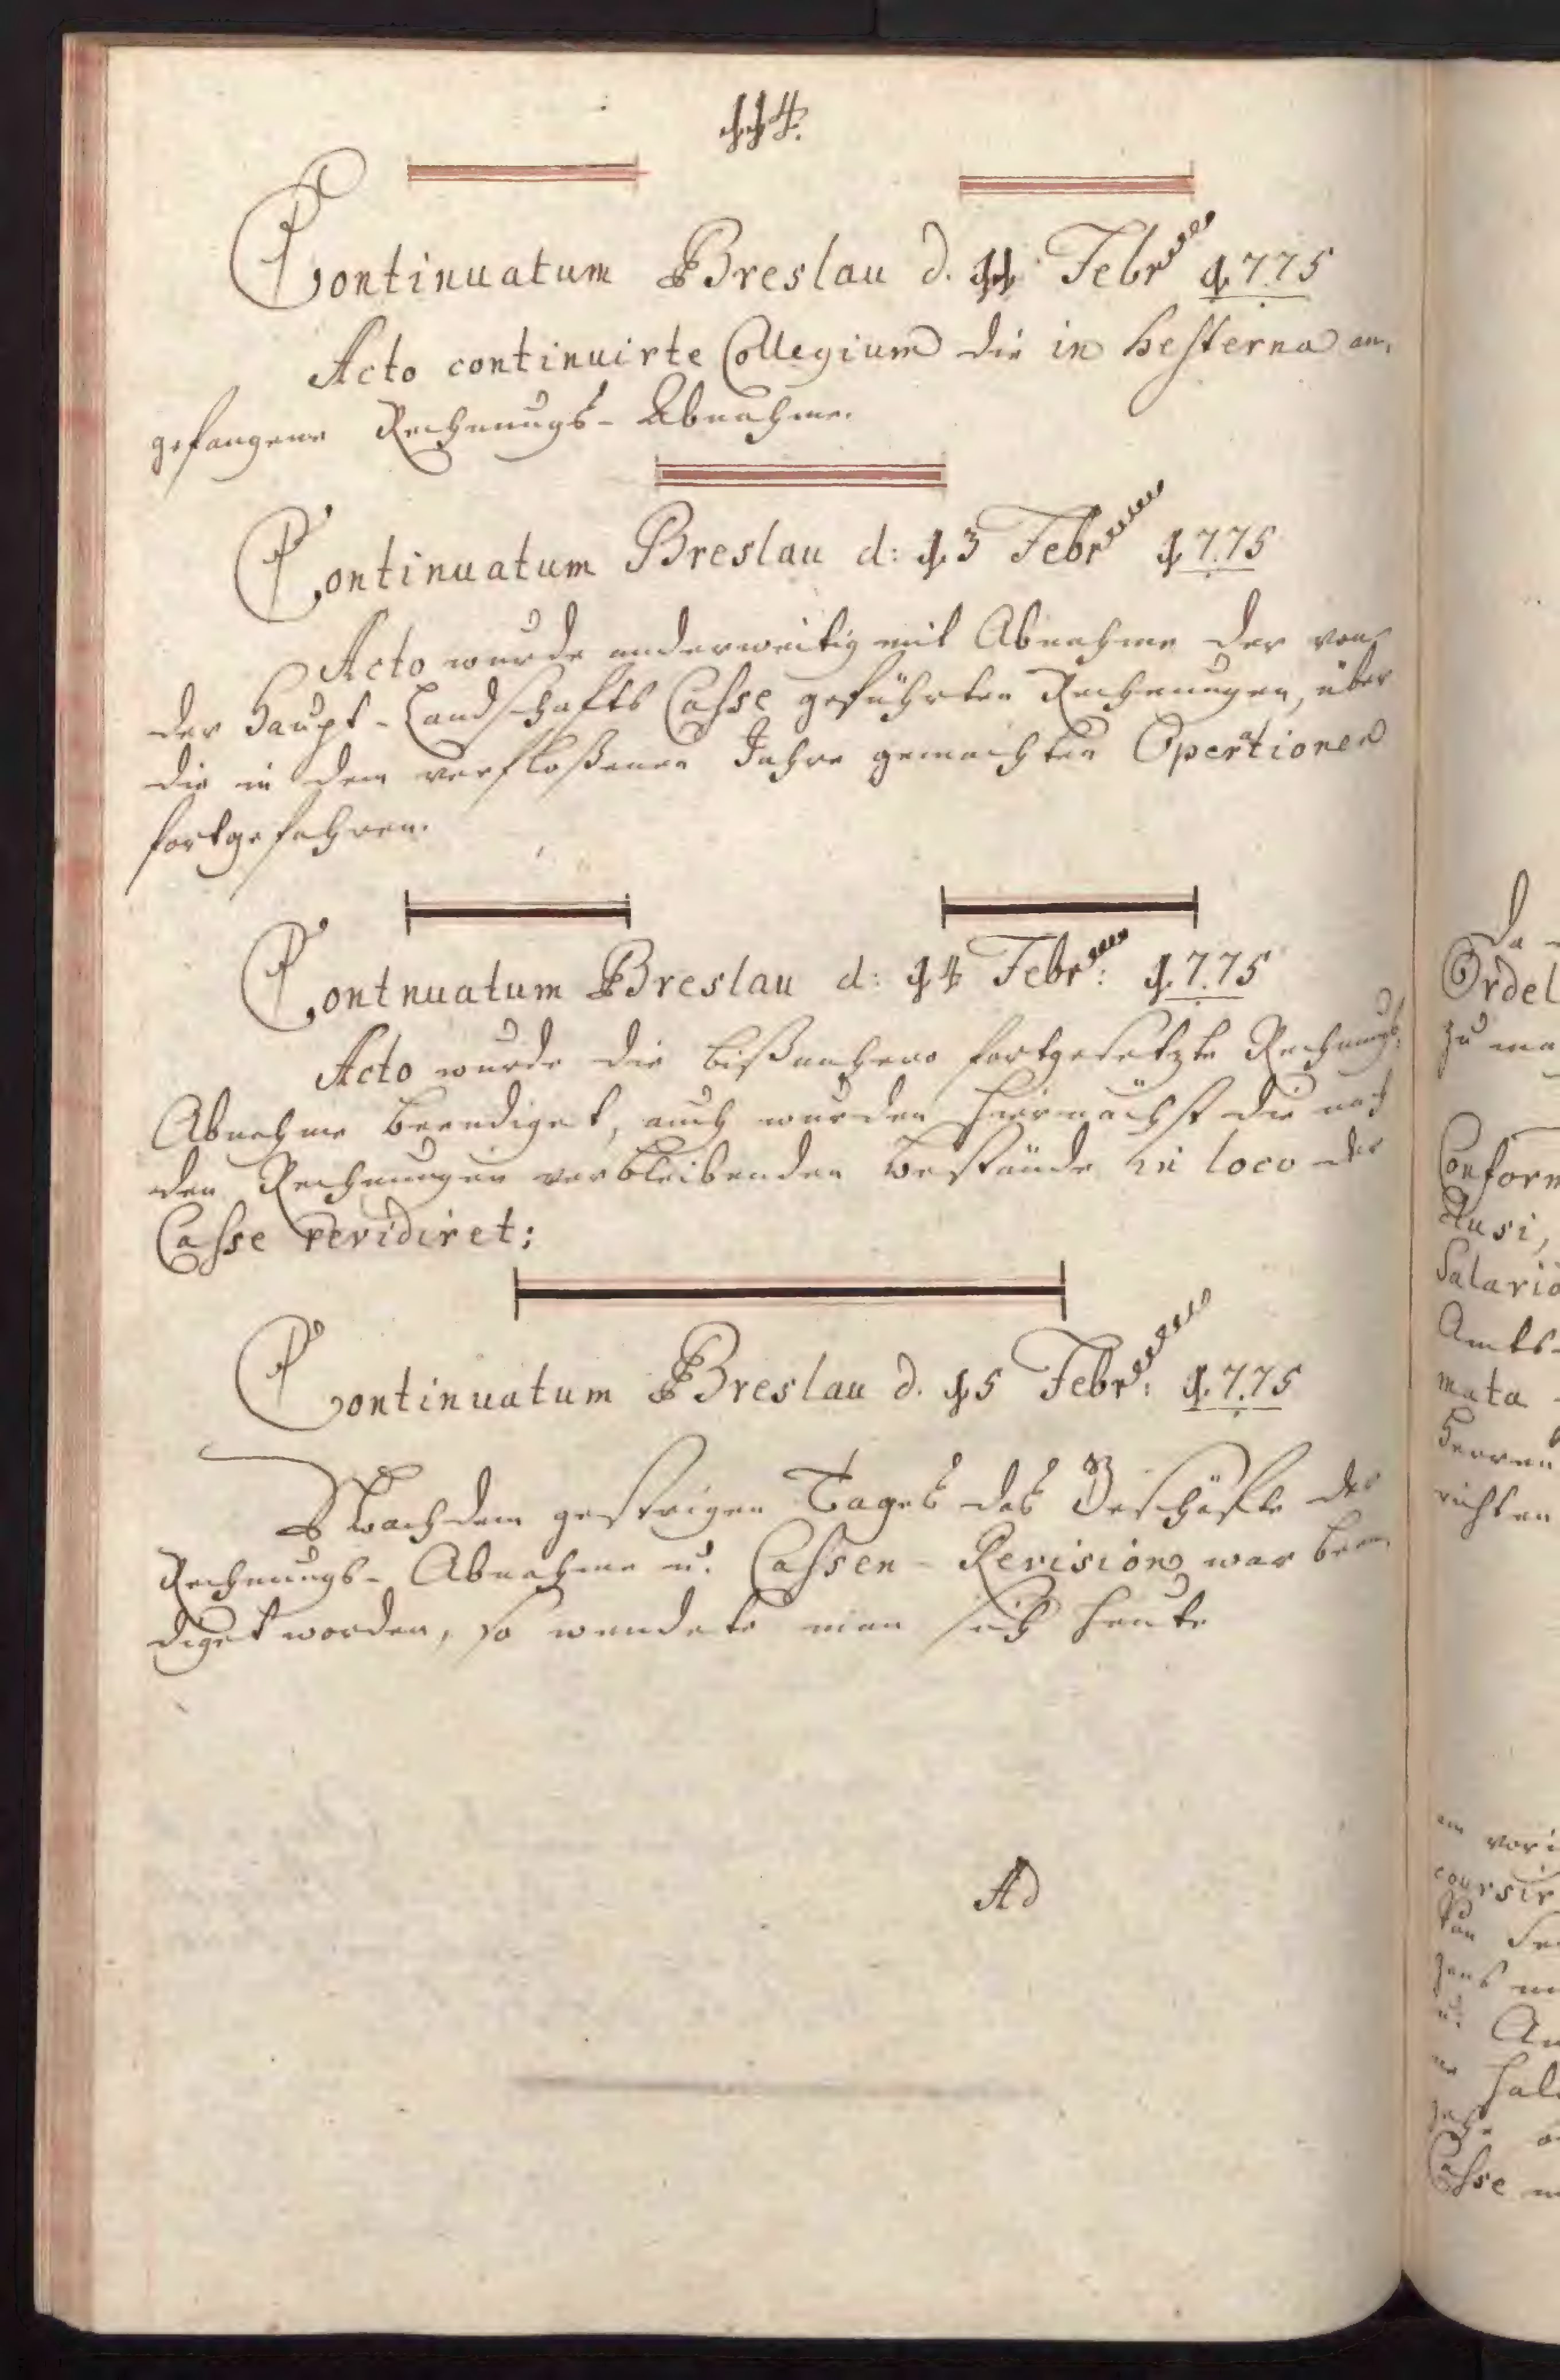 114.
Continuatum Breslau d. 11 Febr: 1775
Acto continuirte Collegium die in hesterna an,
gefangene Rechnungs-Abnahme.
Continuatum Breslau d: 13 Febr 1775
Acto wurde anderweitig mit Abnahme der von
der Haupt-Landschafts Casse geführten Rechnungen, über
die in dem verfloßenen Jahre gemachten Operationen
fortgefahren.
Contnuatum Breslau d: 14 Febr: 1775
Acto wurde die bißanhero fortgesetzte Rechnungs-
Abnahme beendiget, auch wurden hiernächst die nach
den Rechnungen verbleibenden Bestände in loco der
Casse revidiret;
Continuatum Breslau d. 15 Febr: 1775
Nachdem gestrigen Tages das Geschäfte der
Rechnungs-Abnahme u. Cassen-Revision war been,
diget worden, so wendete man sich heute
Ad
Da
Ordel
zu ma
Conform
Ausi,
Salario
Amts-
mata
Herren
richten
vori
coursir
u. An
Casse